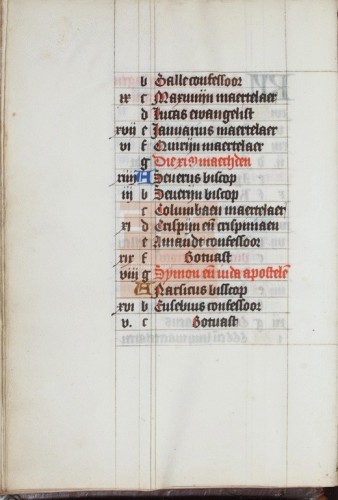 b Galle confessoor
ix c Maxumijn maertelaer
d Lucas ewangelist
xvii e Januarius maertelaer
vi f Quirijn maertelaer
g Die xi m maechden
xiiii A Severus biscop
iii b Severijn biscop
c Columbaen maertelaer
xi d Crispijn en crispiniaen
e Amande confessoor
xix f Botvast
viii g Symon en iuda apostele
A Narsicus bisscop
xvi b Eusebius confessoor
v. c Botvast